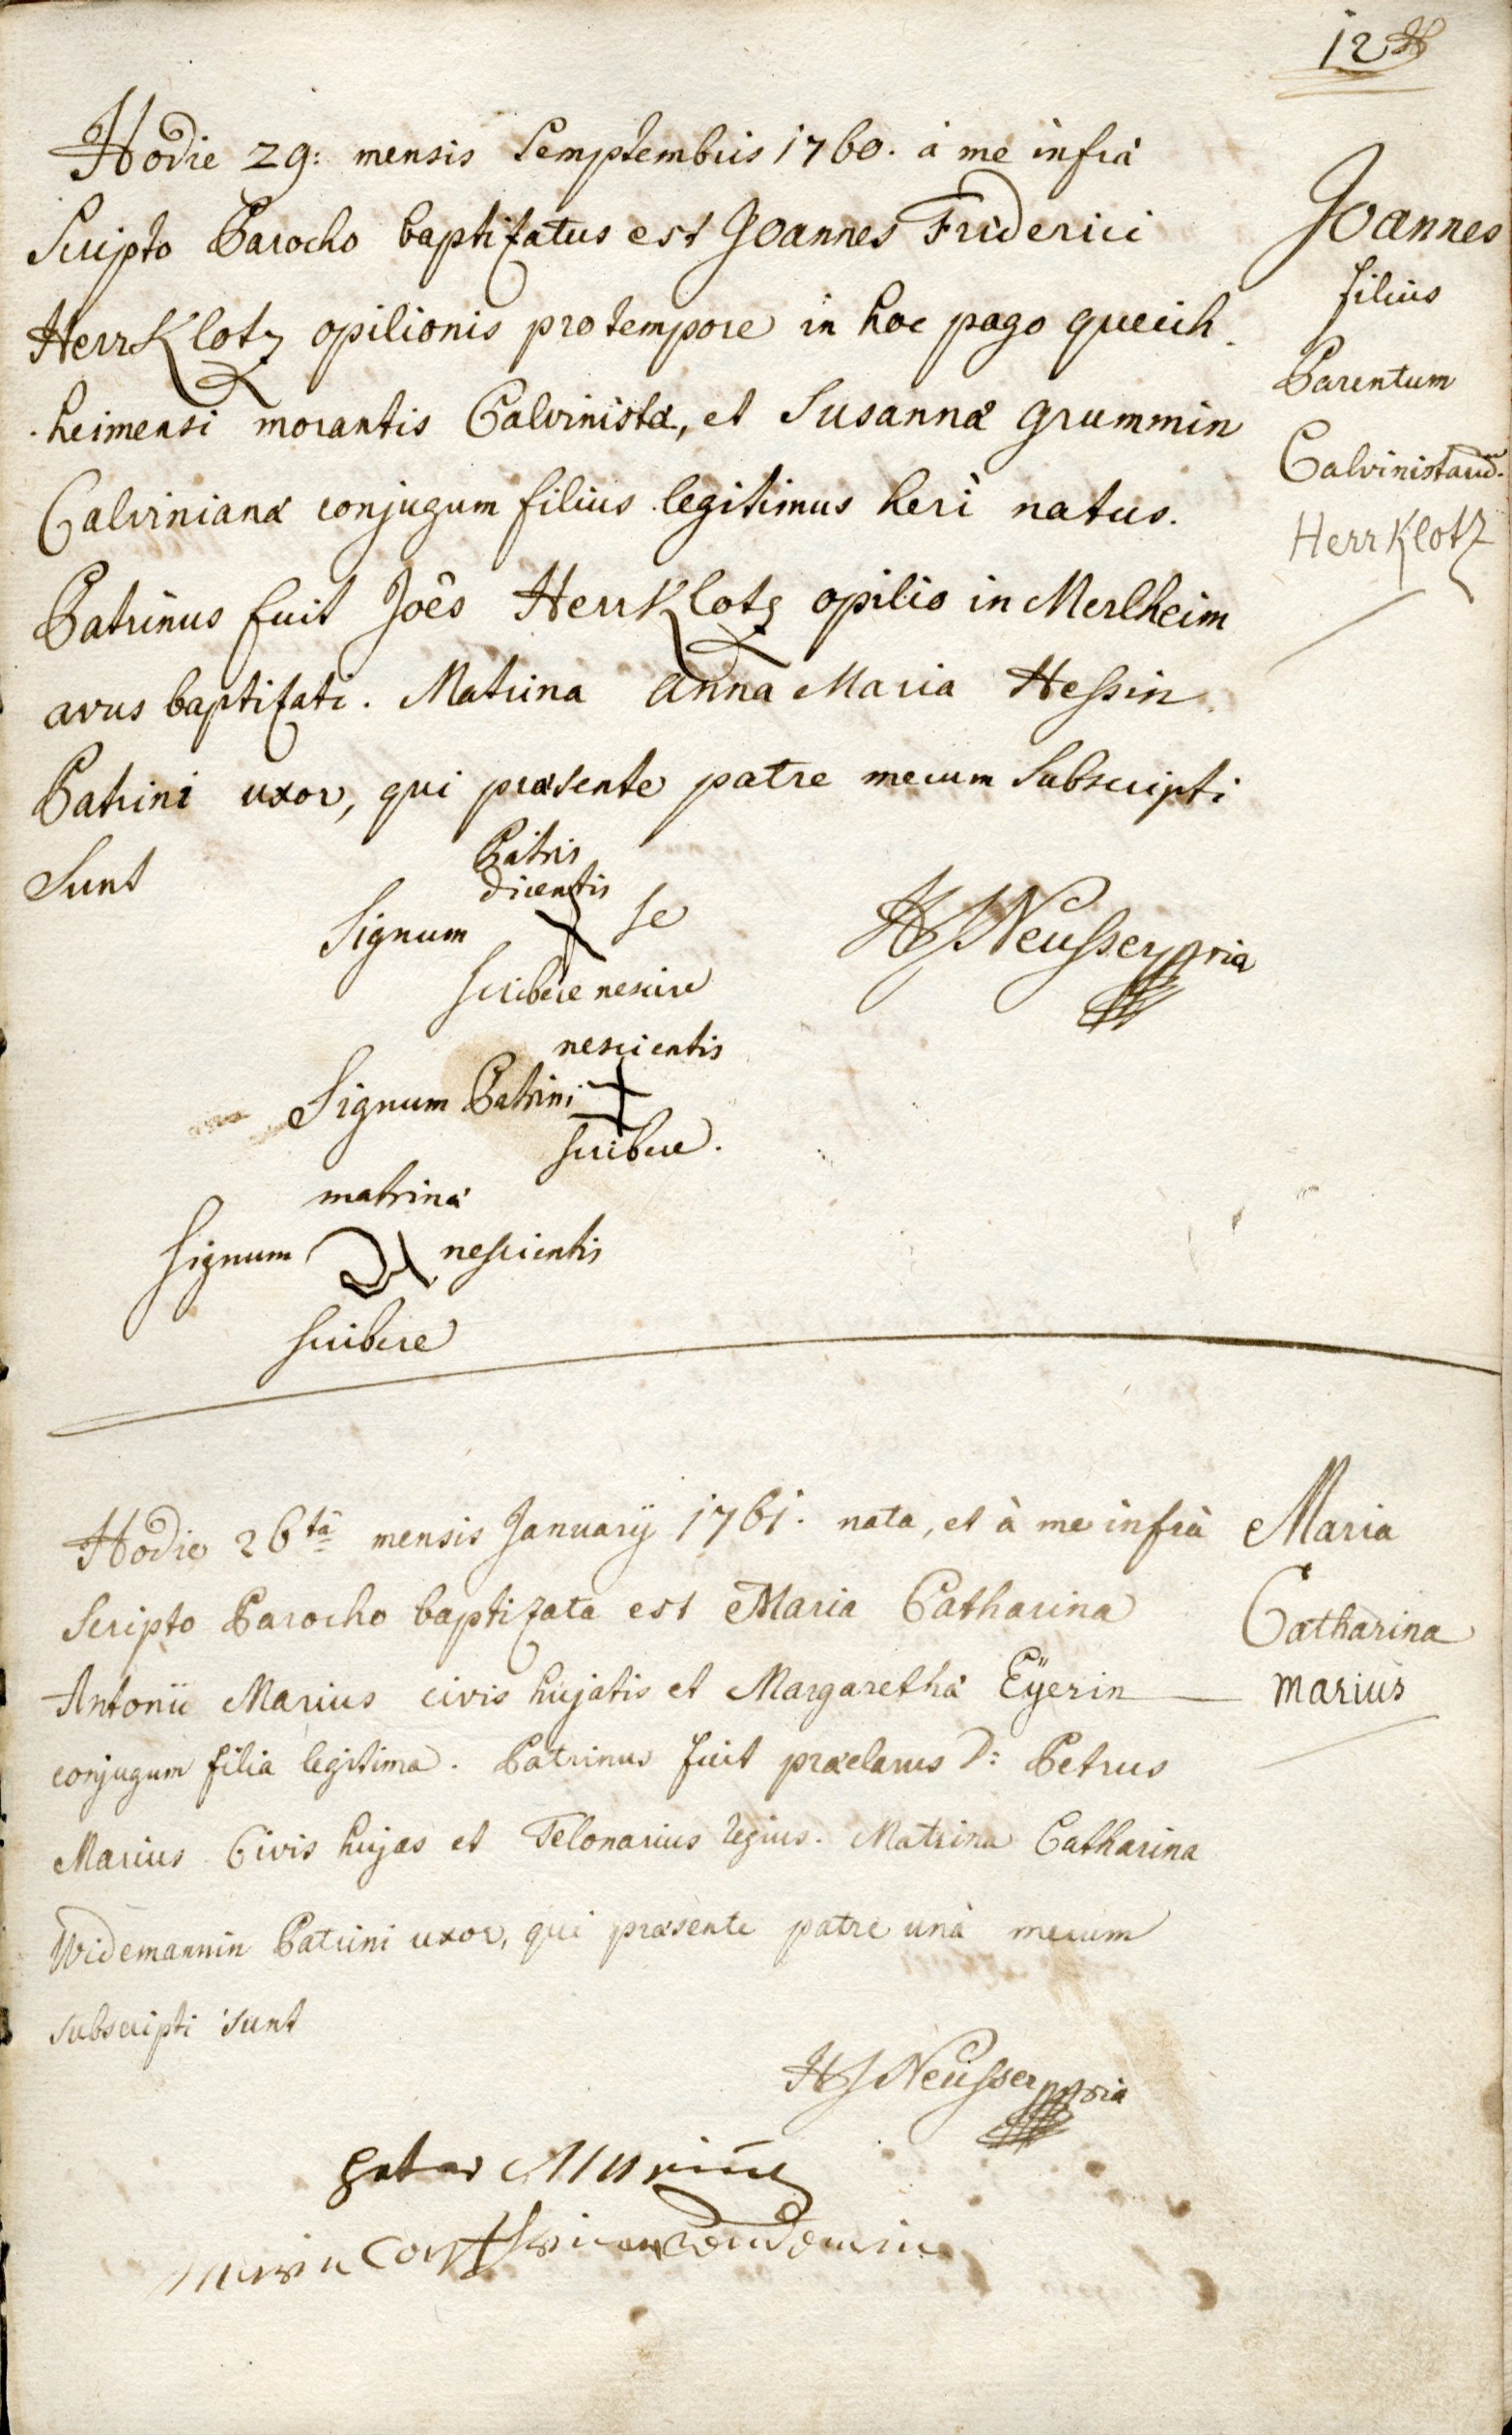 12
Hodie 29: mensis Semptembris 1760. à me infrà
Scripto Parocho baptizatus est Joannes Friderici
HerrKlotz opilionis pro tempore in hoc pago queich-
-heimensi morantis Calvinistæ, et Susannæ Grummin
Calvinianæ conjugum filius legitimus heri natus.
Patrinus fuit Joês HerrKlotz opilio in Merlheim
avus baptizati. Matrina Anna Maria Hessin
Patrini uxor, qui præsente patre mecum Subscripti
Sunt
Joannes
filius
Parentum
Calvinistarum
Herr Klotz
Patris
dicentis
Signum se
scribere nescire
HJ Neusser ppria
nescientis
Signum Patrini
scribere.
matrinæ
signum nescientis
scribere
Hodie 26tâ mensis Januarÿ 1761. nata, et à me infrà
Scripto Parocho baptizata est Maria Catharina
Antonii Marius civis hujatis et Margarethæ Eÿerin
conjugum filia legitima. Patrinus fuit præclarus D: Petrus
Marius Civis hujas et Telonarius regius. Matrina Catharina
Widemannin Patrini uxor, qui præsente patre unà mecum
subscripti sunt
Maria
Catharina
Marius
HJ Neusser ppria
Peter Marius
Maria